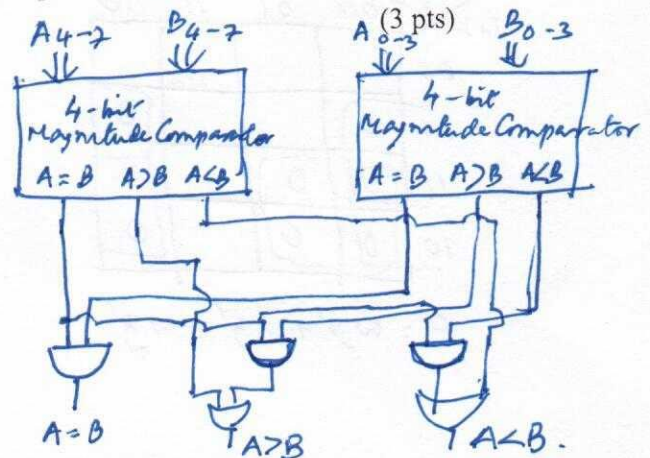 (3 pts)
A4-7 B4-7 A0-3 B0-3
4-bit
Magnitude Comparator
A=B A>B A<B
4-bit
Magnitude Comparator
A=B A>B A<B
A=B A>B A<B.